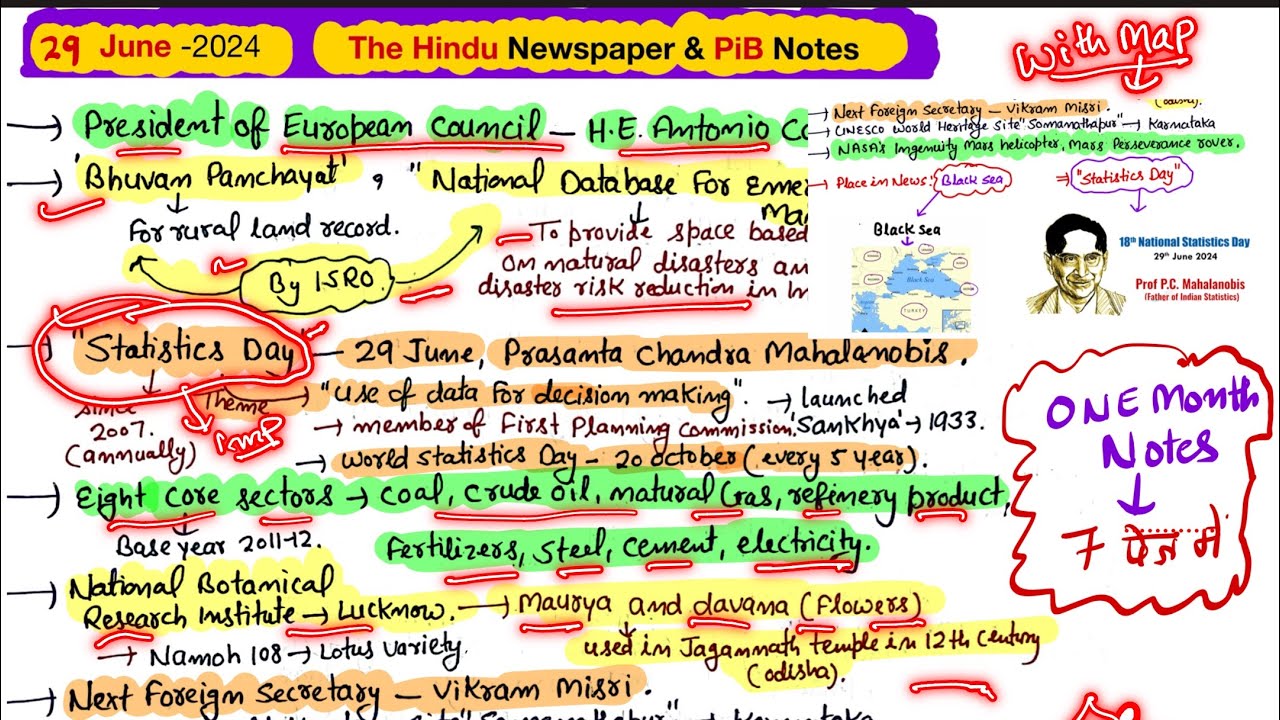 29 June -2024
The Hindu Newspaper & PiB Notes
With Map
→ President of European Council – H.E. Antonio Co
→ 'Bhuvan Panchayat', "National Database For Emer
Ma
For rural land record.
To provide space based
on natural disasters an
By ISRO.
disaster risk reduction in In
Next Foreign Secretary – Vikram Misri.
(odisha).
UNESCO World Heritage Site "Somanathapur" → Karnataka
→ NASA's Ingenuity Mars helicopter, Mars Perseverance rover.
→ Place in News: Black sea
→ "Statistics Day"
Black Sea
Black Sea
TURKEY
18th National Statistics Day
29th June 2024
Prof P.C. Mahalanobis
(Father of Indian Statistics)
→ "Statistics Day" – 29 June, Prasanta Chandra Mahalanobis.
Since 2007.
(annually)
Theme
Imp
→ "Use of data For decision making". → launched
→ member of First Planning commission. 'Sankhya' → 1933.
→ World Statistics Day – 20 october (every 5 year).
→ Eight core sectors → Coal, Crude oil, natural Gas, refinery product,
Base year 2011-12.
Fertilizers, Steel, Cement, electricity.
→ National Botanical
Research Institute → Lucknow. → Maurya and davana (Flowers)
→ Namoh 108 → Lotus variety.
used in Jagannath temple in 12th Century
(odisha).
→ Next Foreign Secretary – Vikram Misri.
ONE Month
Notes
7 पेज में